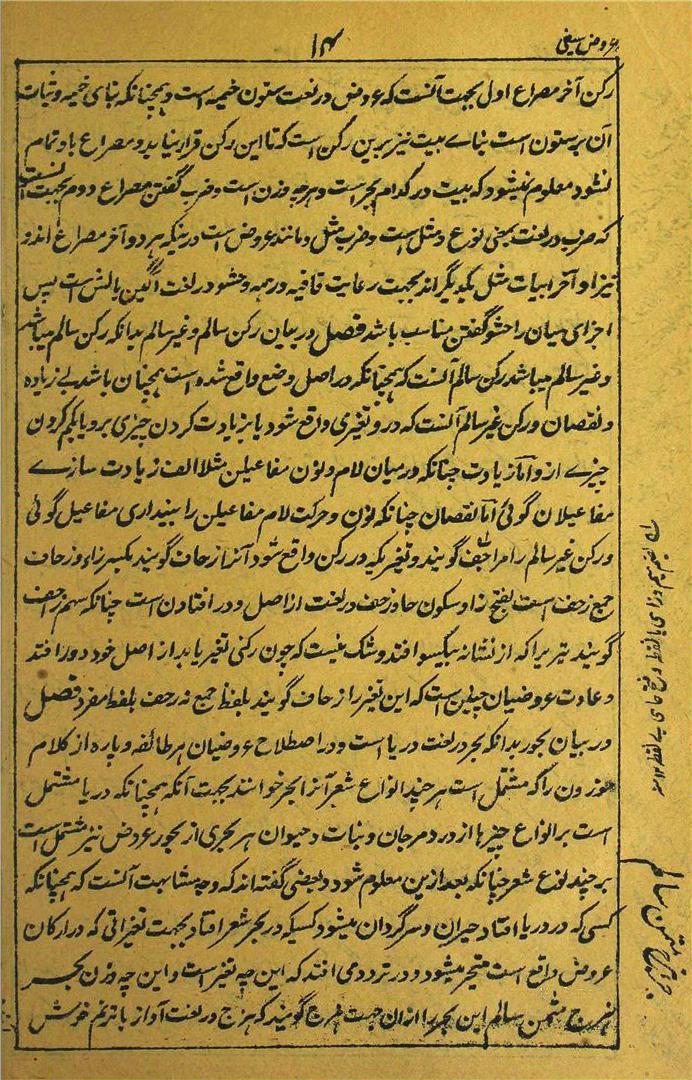 عروض سیفی
۱۴
رکن آخر مصراع اول بجهت آنست که عروض در لغت ستون خیمه است و همچنانکه بنای خیمه و ثبات
آن بر ستون است بناے بیت نیز برین رکن است که تا این رکن قرار نیابد و مصراع باو تمام
نشود معلوم نمیشود که بیت در کدام بحر است و بر چه وزن است و ضرب گفتن مصراع دوم بجهت آنست
که ضرب در لغت بمعنی نوع و مثل است و ضرب مثل و مانند عروض است درینکه هر دو آخر مصراع اند و
نیز اواخر ابیات مثل یکدیگر اند بجهت رعایت قافیه در همه و حشو در لغت آگین بالش است پس
اجزای میان را حشو گفتن مناسب باشد فصل در بیان رکن سالم و غیر سالم بدانکه رکن سالم میباشد
و غیر سالم میباشد رکن سالم آنست که همچنانکه در اصل وضع واقع شده است همچنان باشد بے زیاده
و نقصان و رکن غیر سالم آنست که درو تغیری واقع شود یا بزیادت کردن چیزی برو یا بکم کردن
چیزے ازو اما زیادت چنانکه در میان لام و نون مفاعیلن مثلا الف زیادت سازے
مفاعیلان گوئی اما نقصان چنانکه نون و حرکت لام مفاعیلن را بیندازی مفاعیل گوئی
و رکن غیر سالم را مزاحف گویند و تغیریکه در رکن واقع شود آنرا زحاف گویند بکسر زاء و زحاف
جمع زحف است بفتح زا و سکون حا و زحف در لغت از اصل دور افتادن است چنانکه سهم زاحف
گویند تیریرا که از نشانه بیکسو افتد و شک نیست که چون رکنی تغیر یابد از اصل خود دور افتد
و عادت عروضیان چنین است که این تغیر را زحاف گویند بلفظ جمع نه زحف بلفظ مفرد فصل
در بیان بحور بدانکه بحر در لغت دریا است و در اصطلاح عروضیان هر طائفه و پاره از کلام
موزون را که مشتمل است بر چند انواع شعر آنرا بحر خوانند بجهت آنکه همچنانکه دریا مشتمل
است بر انواع چیزها از در و مرجان و نبات و حیوان هر بحری از بحور عروض نیز مشتمل است
بر چند نوع شعر چنانکه بعد ازین معلوم شود و بعضی گفته اند که وجه مشابهت آنست که همچنانکه
کسی که در دریا افتد حیران و سرگردان میشود کسیکه در بحر شعر افتد بجهت تغیراتی که در ارکان
عروض واقع است متحیر میشود و در تردد می افتد که این چه تغیر است و این چه وزن بحر
هزج مثمن سالم این بحر را ازان جهت هزج گویند که هزج در لغت آواز با ترنم خوش
بحر هزج مثمن سالم